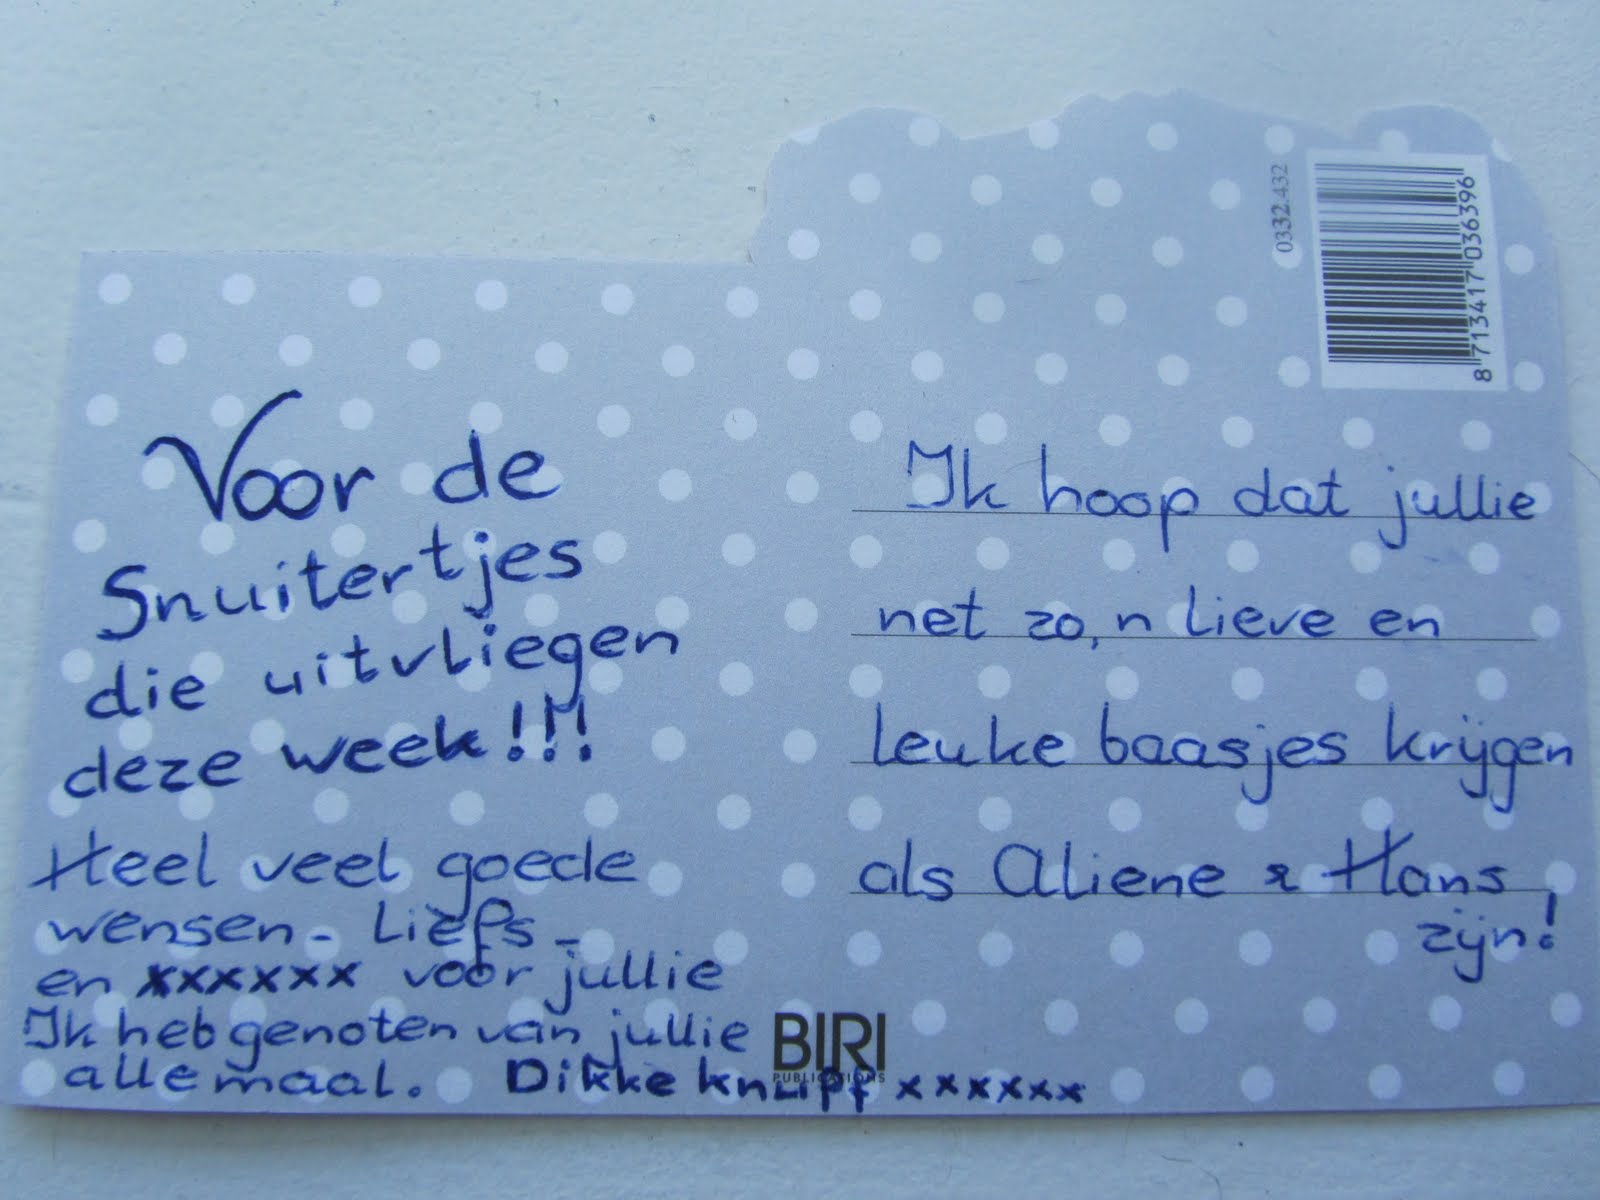 Voor de
Snuitertjes
die uitvliegen
deze week!!!
Heel veel goede
wensen - Liefs -
en xxxxxx voor jullie
Ik heb genoten van jullie
allemaal. Dikke knuff xxxxxx
Ik hoop dat jullie
net zo,n lieve en
leuke baasjes krijgen
als Aliene & Hans
zijn!
BIRI
PUBLICATIONS
0332.432
8 713417 036396